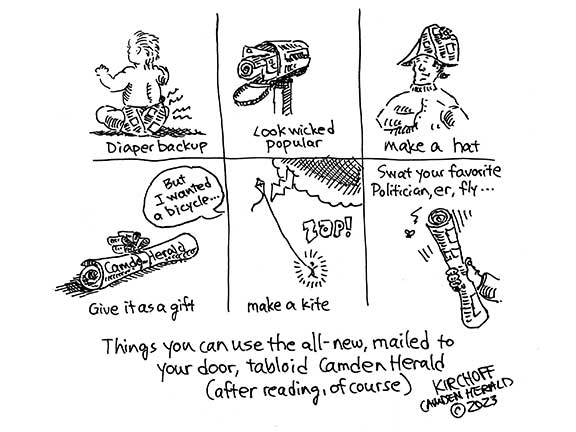 Diaper backup
Look wicked
popular
make a hat
But
I wanted
a bicycle...
Camden Herald
Give it as a gift
ZAP!
make a kite
Swat your favorite
Politician, er, fly...
Things you can use the all-new, mailed to
your door, tabloid Camden Herald
(after reading, of course)
KIRCHOFF
CAMDEN HERALD
©2023